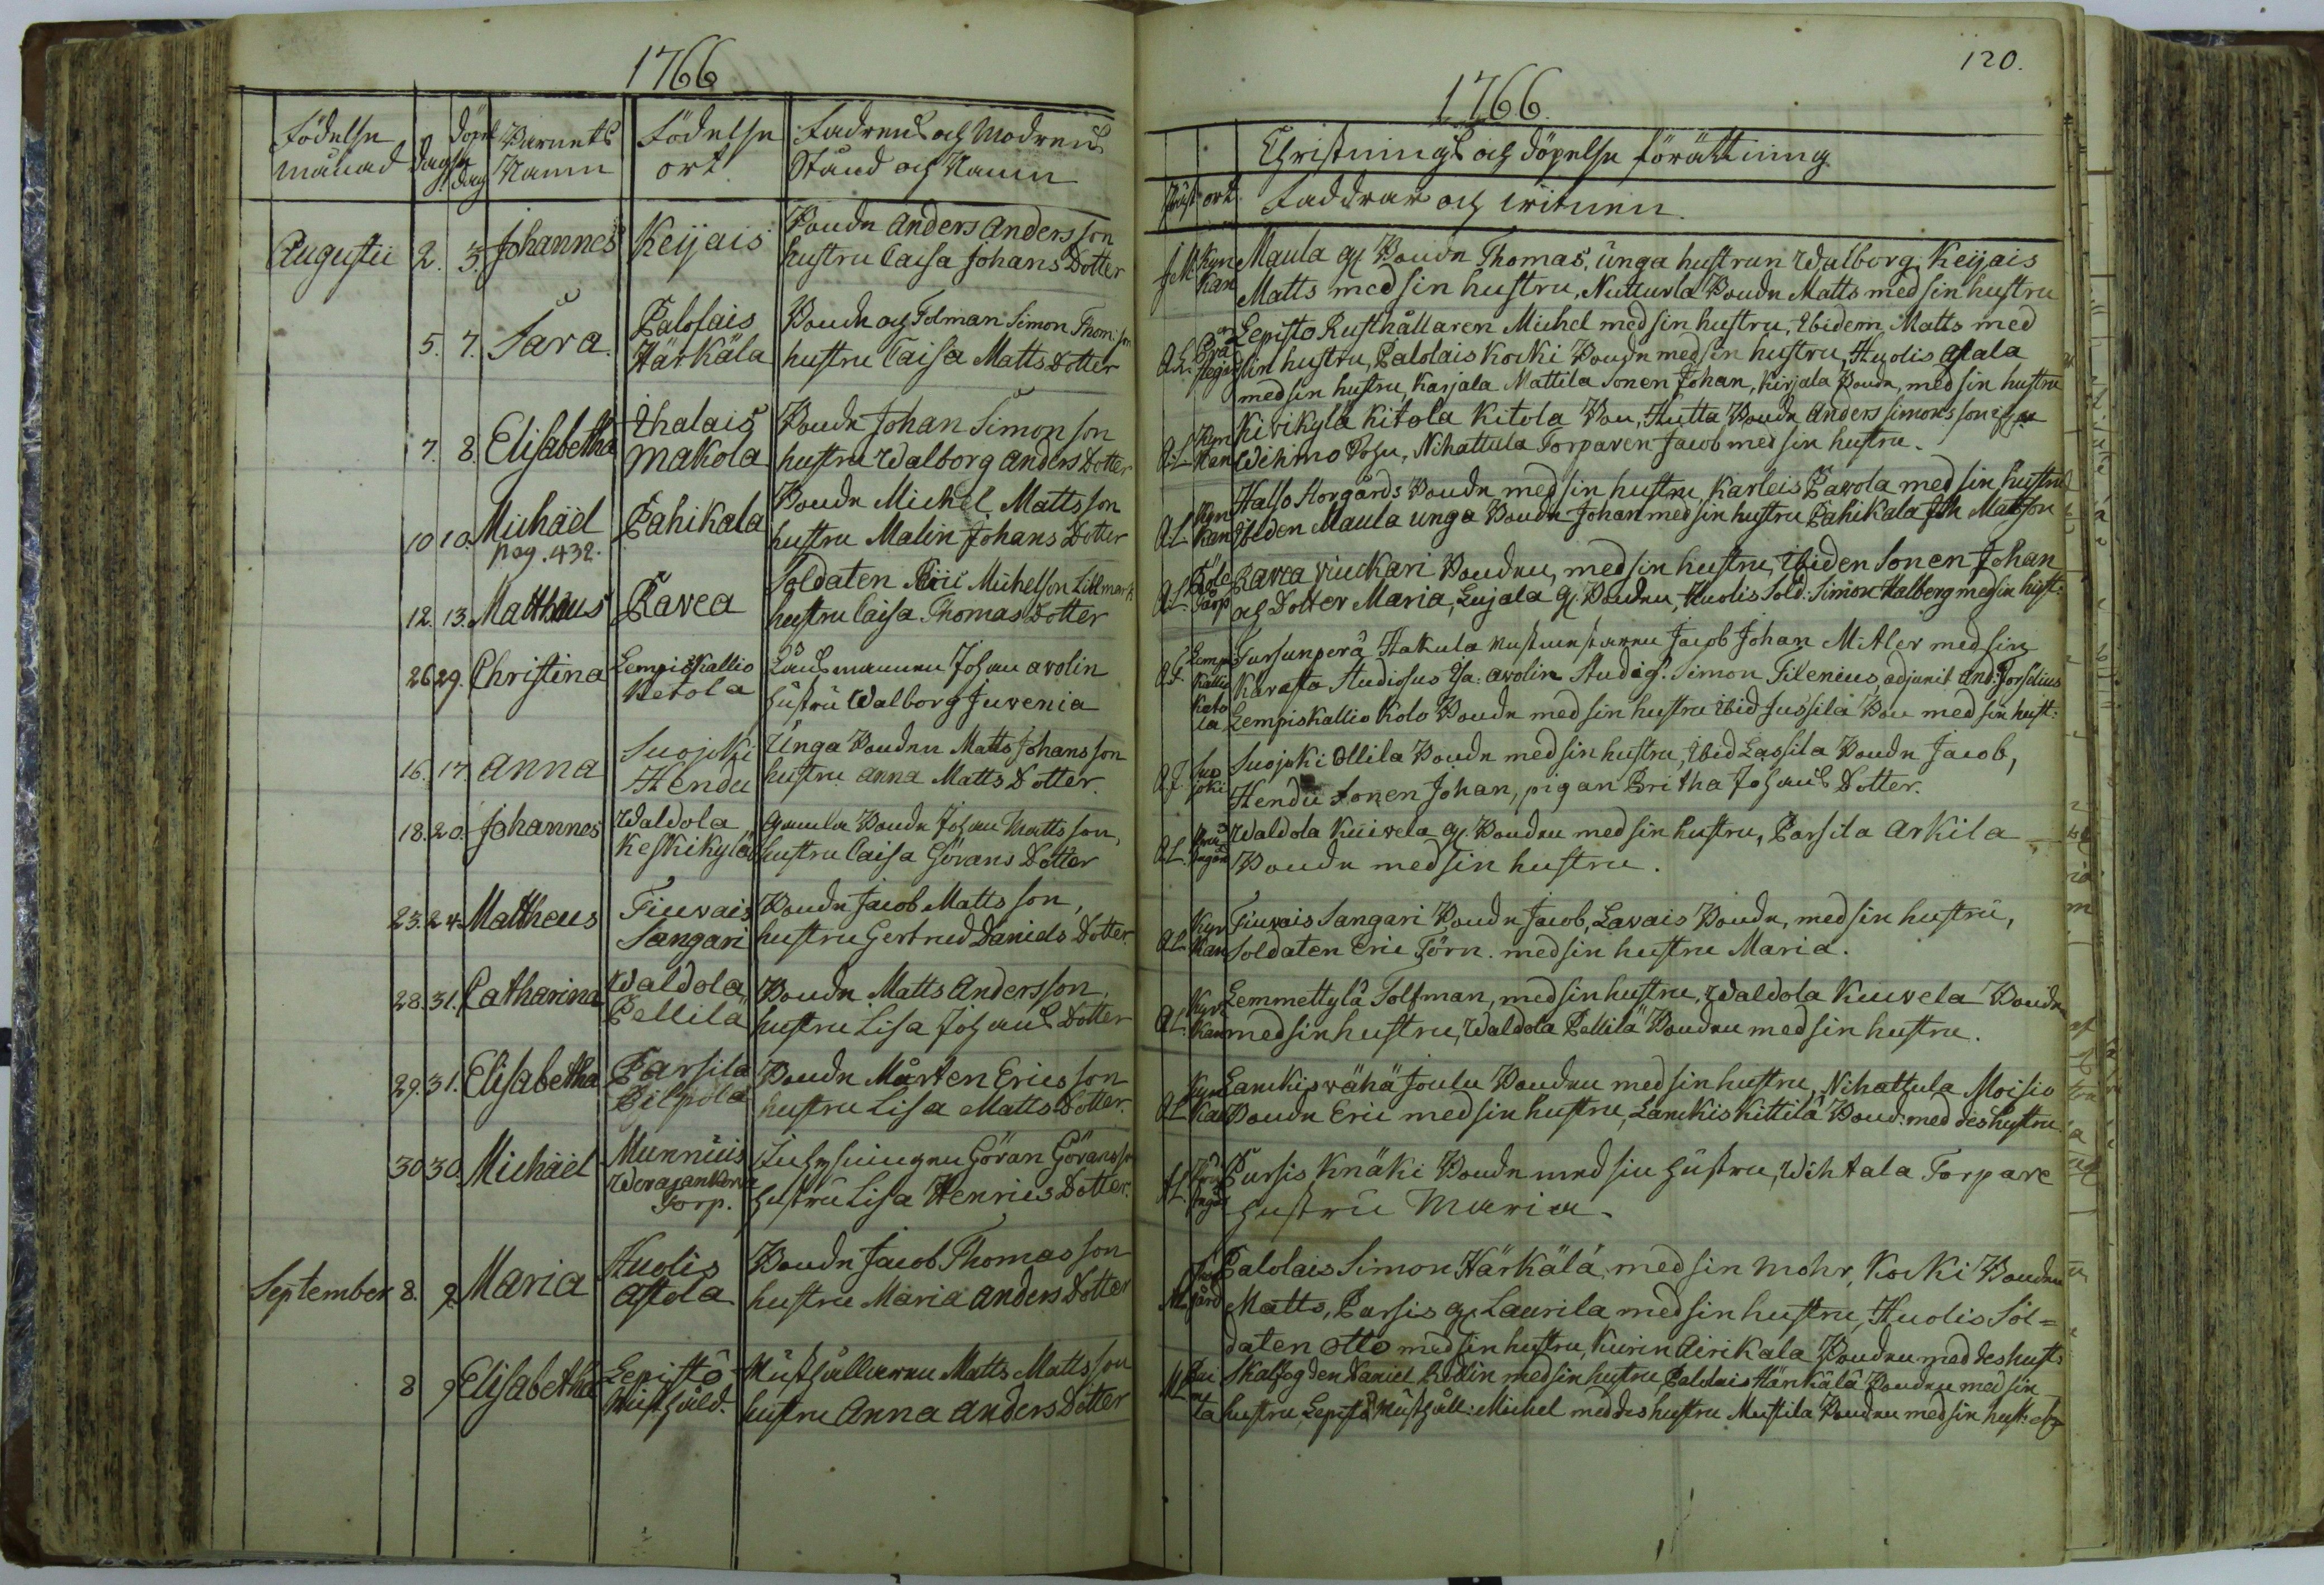 1766
Födelse månad
dag
döpelse dag
Barnets Namn
Födelse ort
Fadrens och Modrens Stånd och Namn
Augustii 2. 3. Johannes Keijais Bonden Anders Andersson
hustru Caisa Johans Dotter
5. 7. Sara. Palolais Härkälä Bonde och Tolman Simon Thom:son
hustru Caisa Matts Dotter
7. 8. Elisabetha Ihalais Makola Bonden Johan Simonson
hustru Walborg Anders Dotter
10 10. Michäel Pahikala Bonden Michel Mattsson
pag. 432. hustru Malin Johans Dotter
12. 13. Mattheus Pavea Soldaten Michelson
hustru Caisa Thomas Dotter
26 29. Christina Lempiskallio Ketola Länsmannen Johan Avolin
hustru Walborg Juvenia
16. 17. Anna Suojoki Hendu Unga Bonden Matts Johansson
hustru Anna Matts Dotter.
18. 20. Johannes Waldola Keskikylä Gamla Bonden Johan Mattsson,
hustru Caisa Görans Dotter
23. 24. Mattheus Tiuvais Sangari Bonden Jacob Mattsson,
hustru Gertrud Daniels Dotter.
28. 31. Catharina Waldola Pellilä Bonden Matts Andersson,
hustru Lisa Johans Dotter
29. 31. Elisabetha Parsila Pilpola Bonden Mårten Ericsson
hustru Lisa Matts Dotter.
30 30. Michäel Munnuis Torp. Inhysingen Göran Göransson
hustru Lisa Henrics Dotter.
September 8. 9. Maria Huolis Astola Bonden Jacob Thomasson
hustru Maria Anders Dotter
8 9 Elisabetha Lepistö Rusthåld. Rusthållaren Matts Mattsson
hustru Anna Anders Dotter
120.
1766.
Christnings och döpelse förättning
ort. Faddrar och witnen.
Kyrkan Maula g. Bonden Thomas, unga hustrun Walborg, Keijais
Matts med sin hustru, Nuturla Bonden Matts med sin hustru
Lepistö Rusthållaren Michel med sin hustru, Ibidem Matts med
sin hustru, Palolais Kocki Bonden med sin hustru, Huolis
med sin hustru, Karjala Mattila Sonen Johan, Kirjala Bonde, med sin hustru
A.L. Kyrkan Kivikylä Kitola Kitola Bon, Hutta Bonden Anders Simonsson
Wihmo, Nihattula Torparen Jacob med sin hustru.
A.L. Kyrkan Halso Storgårds Bonden med sin hustru, Karleis Pavola med sin hustru
Ibidem Maula unga Bonden Johan med sin hustru Pahikala Matsson
Pavea Bonden, med sin hustru, Ibidem Sonen Johan
och Dotter Maria, Lujala g. Bonden, Huolis Sold: Simon Halberg med sin hust:
Lempiskallio Ketola Tursunperä Hakula Jacob Johan med sin
Avolin Simon Adjunct And: Forselius
Lempiskallio Kolo Bonden med sin hustru Ibid Jussila Bon med sin hust:
Suojoki Suojoki Ollila Bonden med sin hustru, Ibid Lassila Bonden Jacob,
Hendu Sonen Johan, pigan Britha Johans Dotter.
A.L. Waldola Kuivela g. Bonden med sin hustru, Parsila Arkila
Bonden med sin hustru.
A.L. Kyrkan Tiuvais Sangari Bonden Jacob, Lavais Bonden, med sin hustru,
Soldaten Eric Törn. med sin hustru Maria.
A.L. Kyrkan Lemmettylä Tolfman, med sin hustru, Waldola Kuivela Bonden
med sin hustru, Waldola Pellilä Bonden med sin hustru.
A.L. Kyrkan Lanckis wähä Joulu Bonden med sin hustru, Nihattula Moisio
Bonden Eric med sin hustru, Lanckis Kittilä Bond: med des hustru
Pursis Knäki Bonden med sin hustru, Wihtala Torpare
hustru Maria.
Palolais Simon Härkälä, med sin Mohr, Kocki Bonden
Matts, Pursis g. Laurila med sin hustru, Huolis Sol=
daten Otto med sin hustru, Kurin Airikala Bonden med des hustr:
Daniel med sin hustru, Palolais Härkälä Bonden med sin
hustru, Lepistö Rusthåll: Michel med des hustru Mustila Bonden med sin hust: